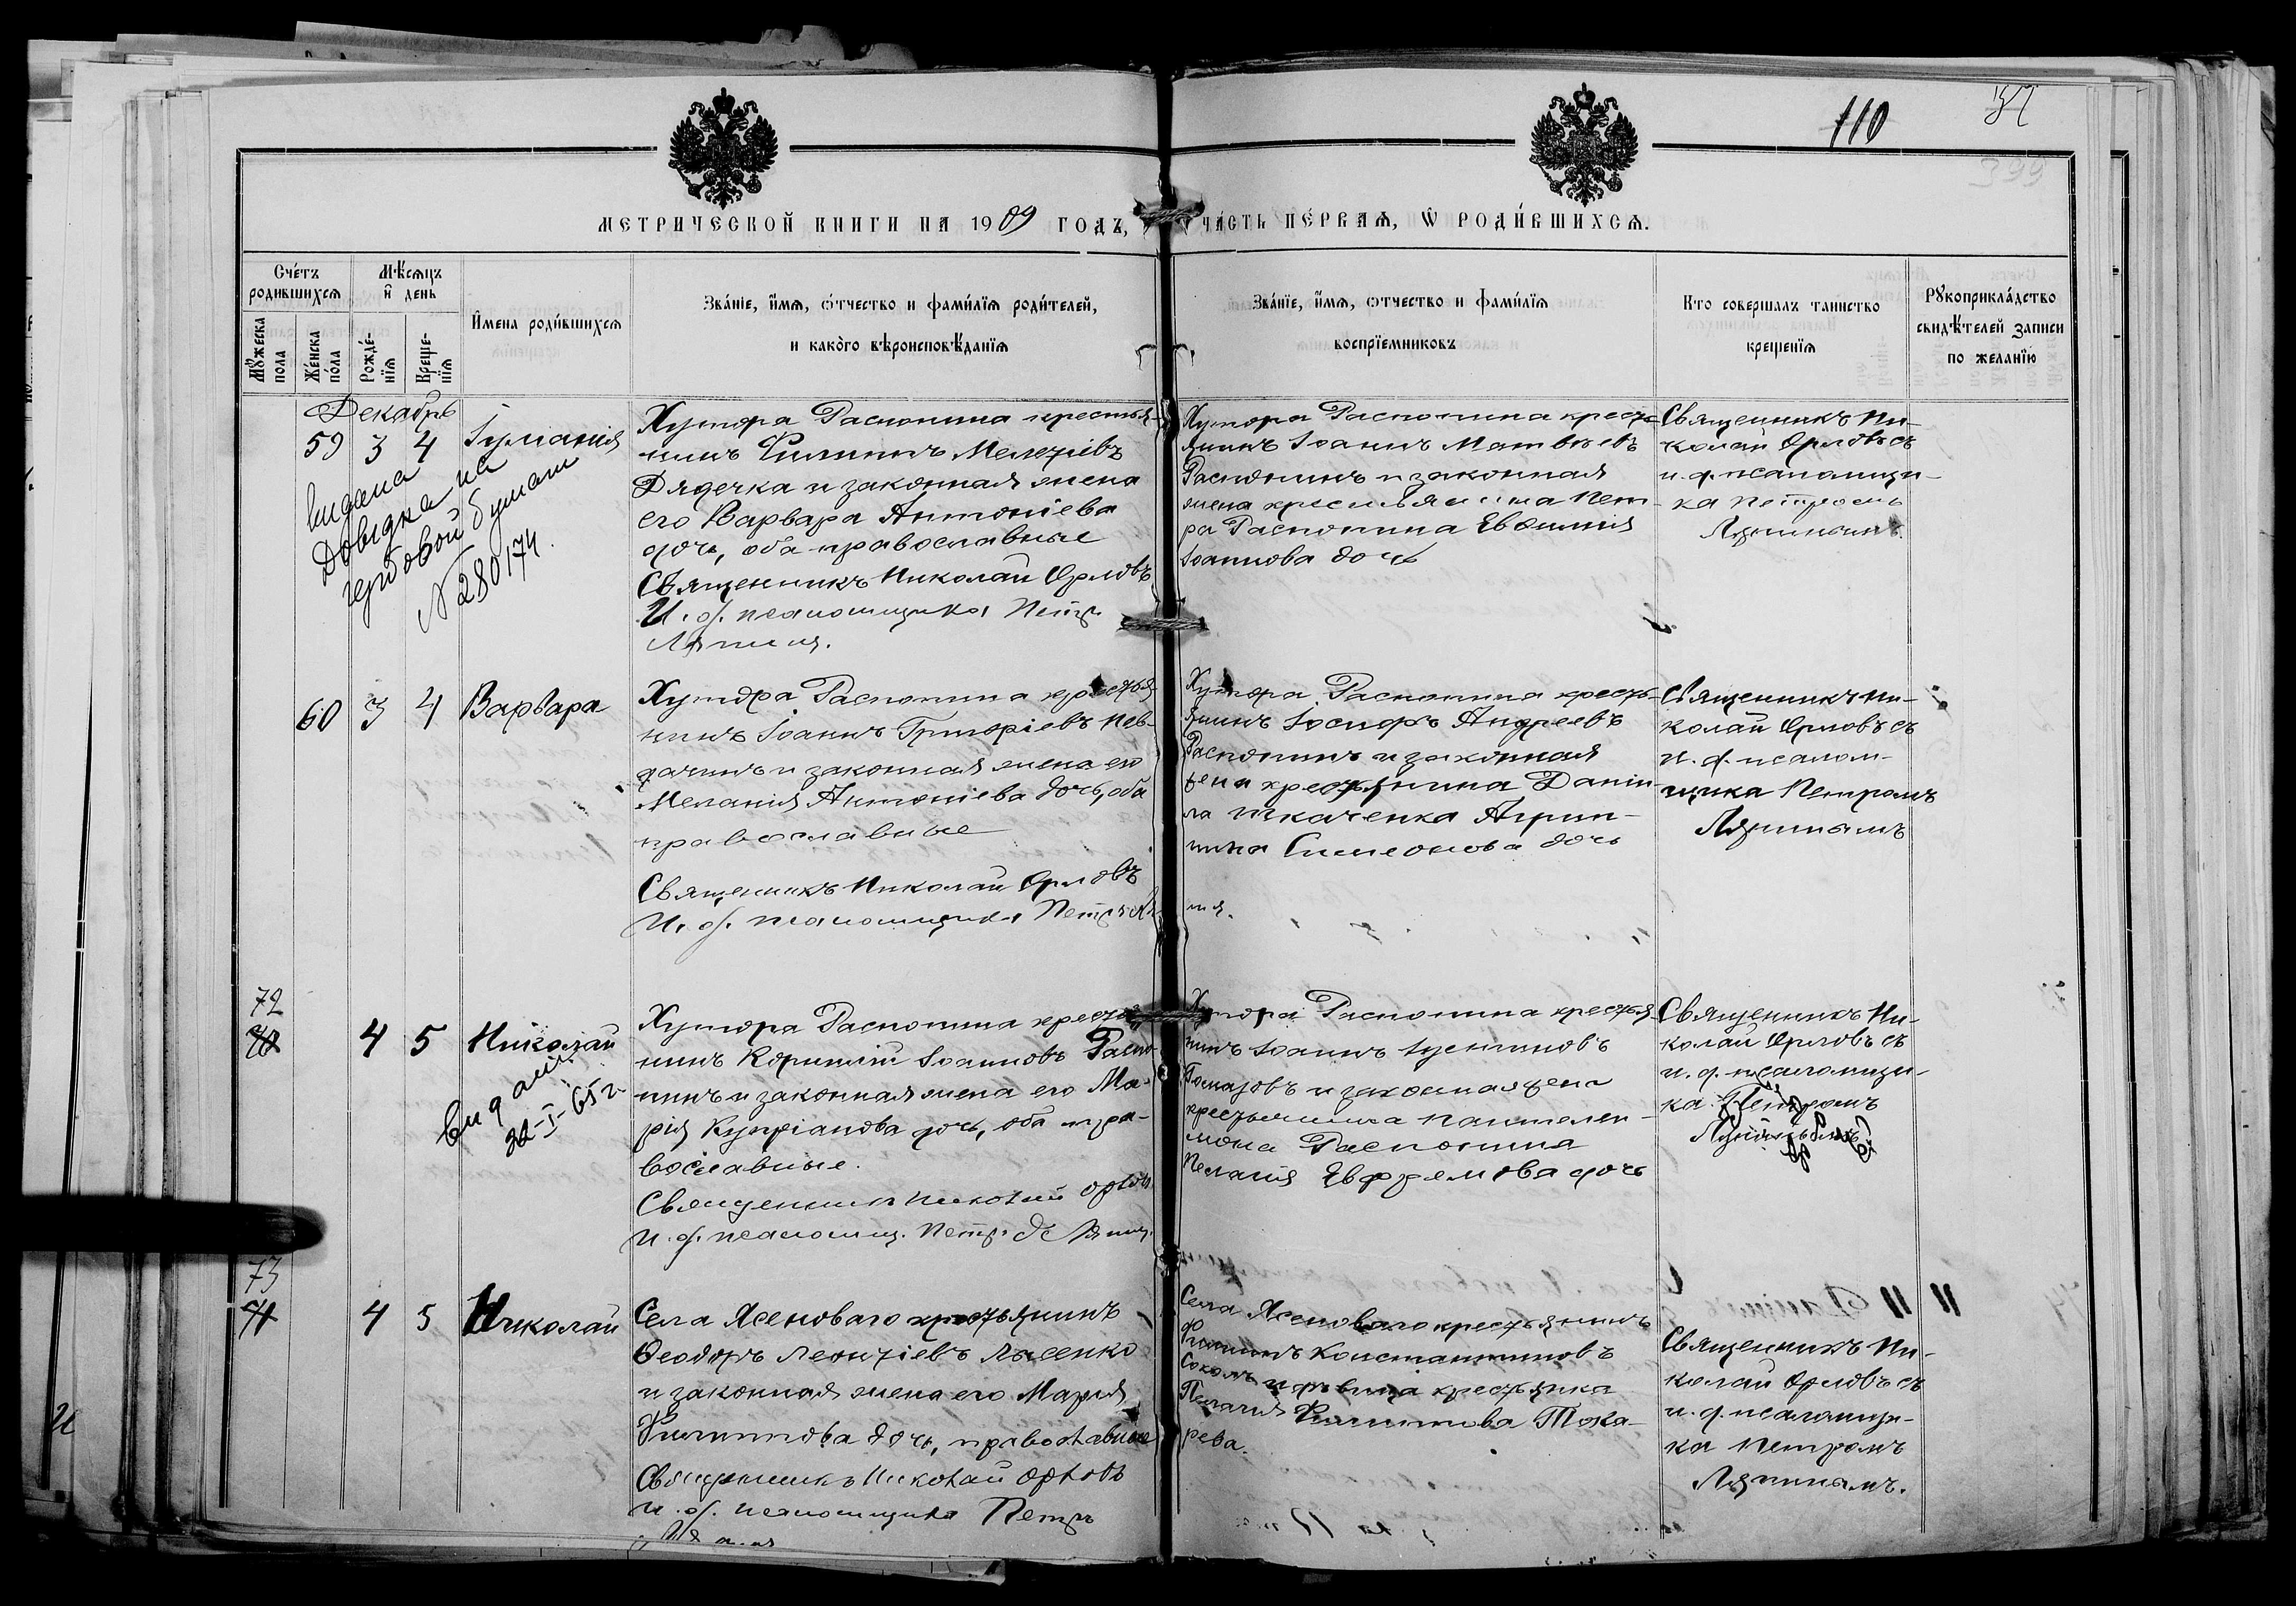 110
37
399
МЕТРИЧЕСКОЙ КНИГИ НА 1909 ГОДЪ,
ЧА́СТЬ ПЕ́РВАѦ, Ѡ РОДИ́ВШИХСѦ.
Сче́тъ родившихсѧ
Мѣ́сѧцъ и҆ день
Мꙋ́жеска пола
Же́нска по́ла
Рожде́-нїѧ
Креще-нїѧ
И҆мена роди́вшихсѧ
Зва́нїе, и҆́мѧ, ѻ҆́тчество и фами́лїѧ роди́телей,
и како́го вѣроисповѣ́данїѧ
Зва́нїе, и҆́мѧ, ѻтчество и фами́лїѧ
воспрїемниковъ
Кто совершалъ таинство
крещенїѧ
Рꙋкоприкла́дство
свидѣ́телей записи
по желанїю
Декабрь
59 3 4 Іуліанія
видана
Довидка на
гербовой бумаги
N 280174.
Хутора Распопина крестья-
нинъ Филиппъ Мелетіевъ
Дядечка и законная жена
его Варвара Антоніева
дочь, оба православные
Священникъ Николай Орловъ
И. об. псаломщика Петр
Ляпинъ.
Хутора Распопина кресть-
янинъ Іоаннъ Матвѣевъ
Распопинъ и законная
жена крестьянина Пет-
ра Распопина Евфимія
Іоаннова дочь
Священникъ Ни-
колай Орловъ съ
и. д. псаломщи-
ка Петромъ
Ляпинымъ.
60 3 4 Варвара
Хутора Распопина крестья-
нинъ Іоаннъ Григоріевъ Нев-
дачинъ и законная жена его
Меланія Антоніева дочь, оба
православные
Священникъ Николай Орловъ
И. об. псаломщика Петръ Ля
пин.
Хутора Распопина кресть-
янинъ Іосифъ Андреевъ
Распопинъ и законная
жена крестьянина Даніи-
ла Ткаченка Агрип-
пина Симеонова дочь
Священникъ Ни-
колай Орловъ съ
и. д. псалом-
щика Петромъ
Ляпинымъ
72
70 4 5 Николай
видан
22-I-65 г
Хутора Распопина крестья-
нинъ Корнилій Іоанновъ Распо-
пинъ и законная жена его Ма-
рія Купріанова дочь, оба пра-
вославные.
Священникъ Николай Орловъ
И. об. псаломщ. Петръ Ляпин.
Хутора Распопина крестья-
нинъ Іоаннъ Іустиновъ
и законная жена
крестьянина Пантелей-
мона Распопина
Пелагія Евфремова дочь
Священникъ Ни-
колай Орловъ съ
и. д. псаломщи-
ка Петромъ
Ляпинымъ
73
71 4 5 Николай
Села Ясеноваго крестьянинъ
Ѳеодоръ Леонтіевъ Лысенко
и законная жена его Марія
Филиппова дочь, православные
Священникъ Николай Орловъ
и. об. псаломщика Петръ
Ляпин
Села Ясеноваго крестьянинъ
Филиппъ Константиновъ
Соколъ и дѣвица крестьянка
Пелагія Филиппова Тока-
рева.
Священникъ Ни-
колай Орловъ съ
и. д. псаломщи-
ка Петромъ
Ляпинымъ.